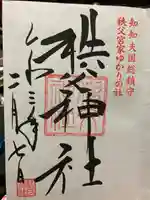 知知夫国総鎮守
秩父宮家ゆかりの社
秩父神社
令和三年
二月七日